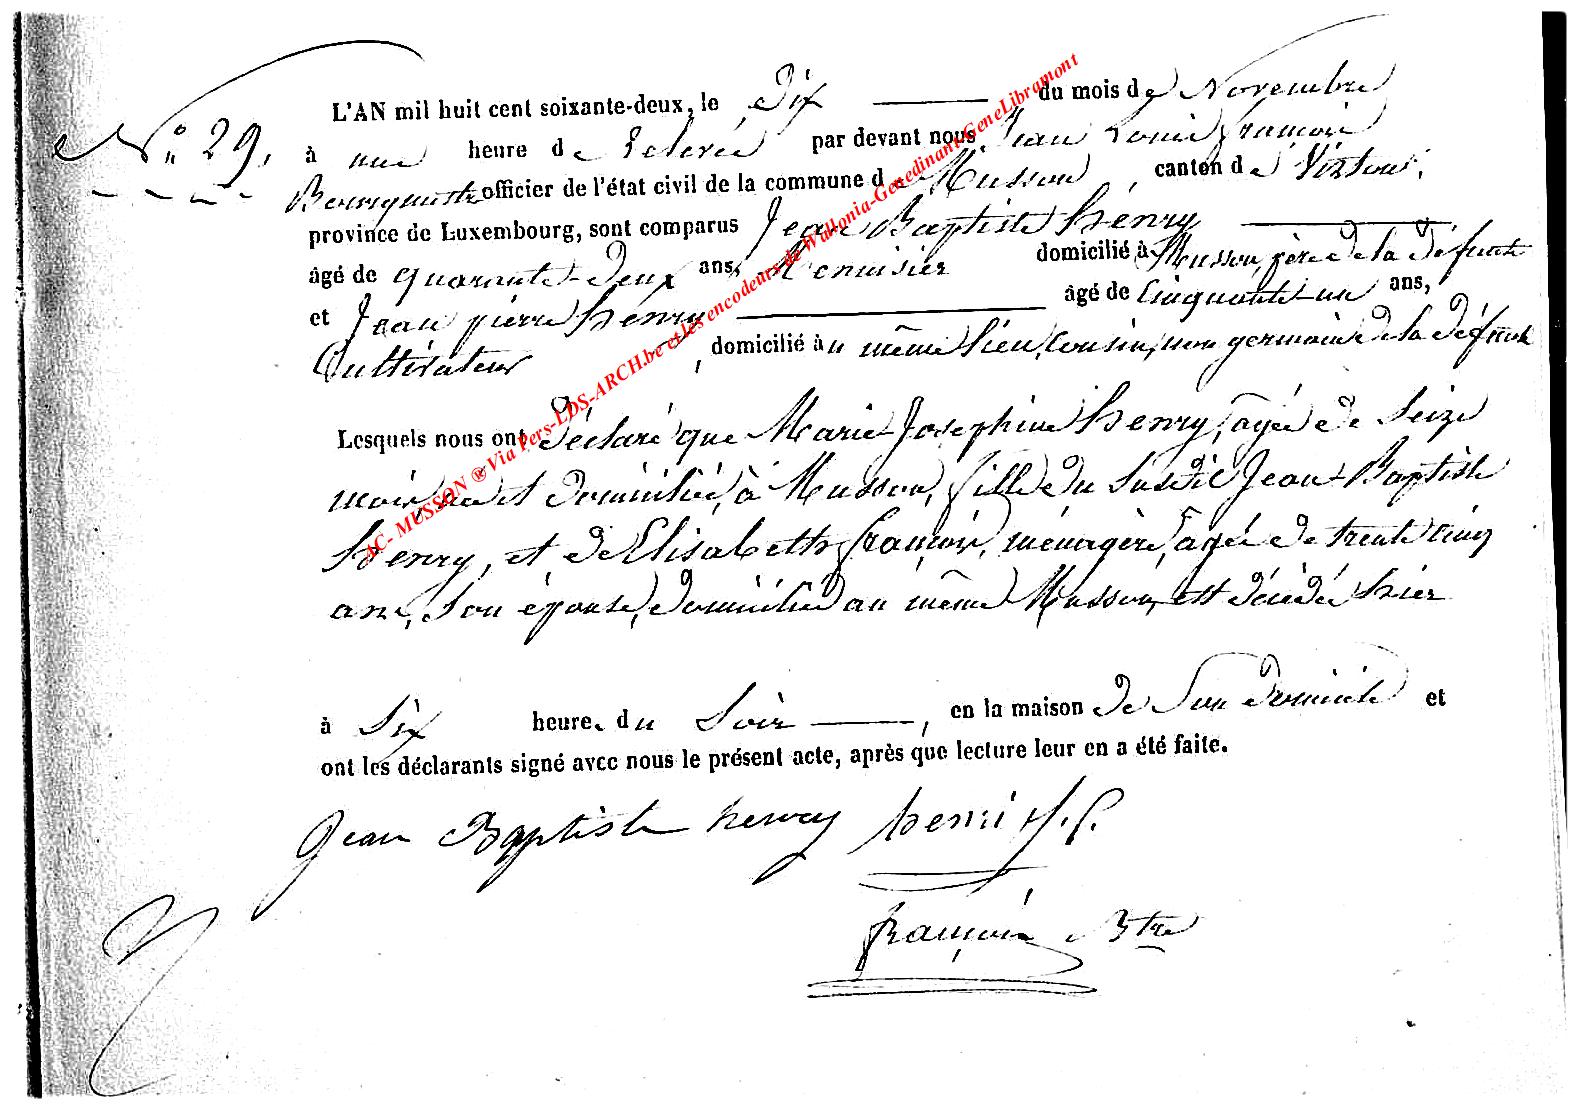 N° 29.
L'AN mil huit cent soixante-deux, le Dix du mois de Novembre
à une heure de relevée par devant nous Jean Louis françois
Bourgmestre officier de l'état civil de la commune de Musson, canton de Virton,
province de Luxembourg, sont comparus Jean Baptiste henry
âgé de quarante-deux ans, Menuisier domicilié à Musson, père de la défunte
et Jean pierre henry âgé de Cinquante-un ans,
Cultivateur, domicilié au même lieu, Cousin, non germain de la défunte
Lesquels nous ont déclaré que Marie Josephine henry, âgée de Seize
mois, née et domiciliée, à Musson, fille du Susdit Jean-Baptiste
henry, et de Elisabeth françois, ménagère, agée de trente cinq
ans, Son épouse, domiciliée au même Musson, est décédée hier
à Six heures du Soir, en la maison de Son domicile et
ont les déclarants signé avec nous le présent acte, après que lecture leur en a été faite.
Jean Baptiste henry henri J. P.
françois Btre
AC- MUSSON ® Via Pers-LDS-ARCH.be et les encodeurs de Wallonia-Genedinant-GeneLibramont